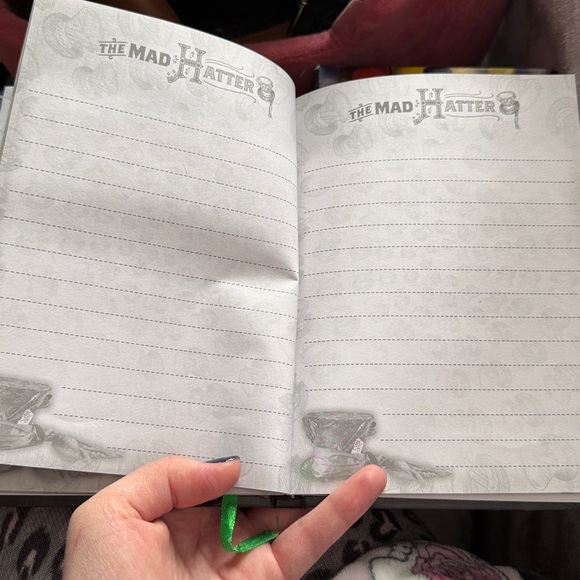 THE MAD HATTER
THE MAD HATTER